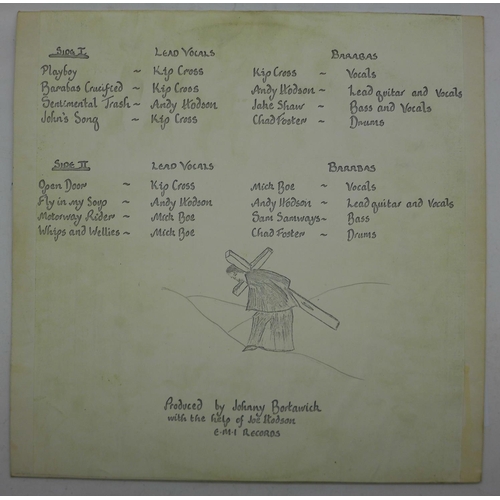 SIDE I LEAD VOCALS BARABAS
Playboy ~ Kip Cross Kip Cross ~ Vocals
Barabas Crucified ~ Kip Cross Andy Hodson ~ Lead guitar and Vocals
Sentimental Trash ~ Andy Hodson Jake Shaw ~ Bass and Vocals
John's Song ~ Kip Cross Chad Foster ~ Drums
SIDE II LEAD VOCALS BARABAS
Open Door ~ Kip Cross Mick Boe ~ Vocals
Fly in my Soup ~ Andy Hodson Andy Hodson ~ Lead guitar and Vocals
Motorway Rider ~ Mick Boe Sam Samways ~ Bass
Whips and Wellies ~ Mick Boe Chad Foster ~ Drums
Produced by Johnny Bortawick
with the help of Joe Hodson
E·M·I RECORDS